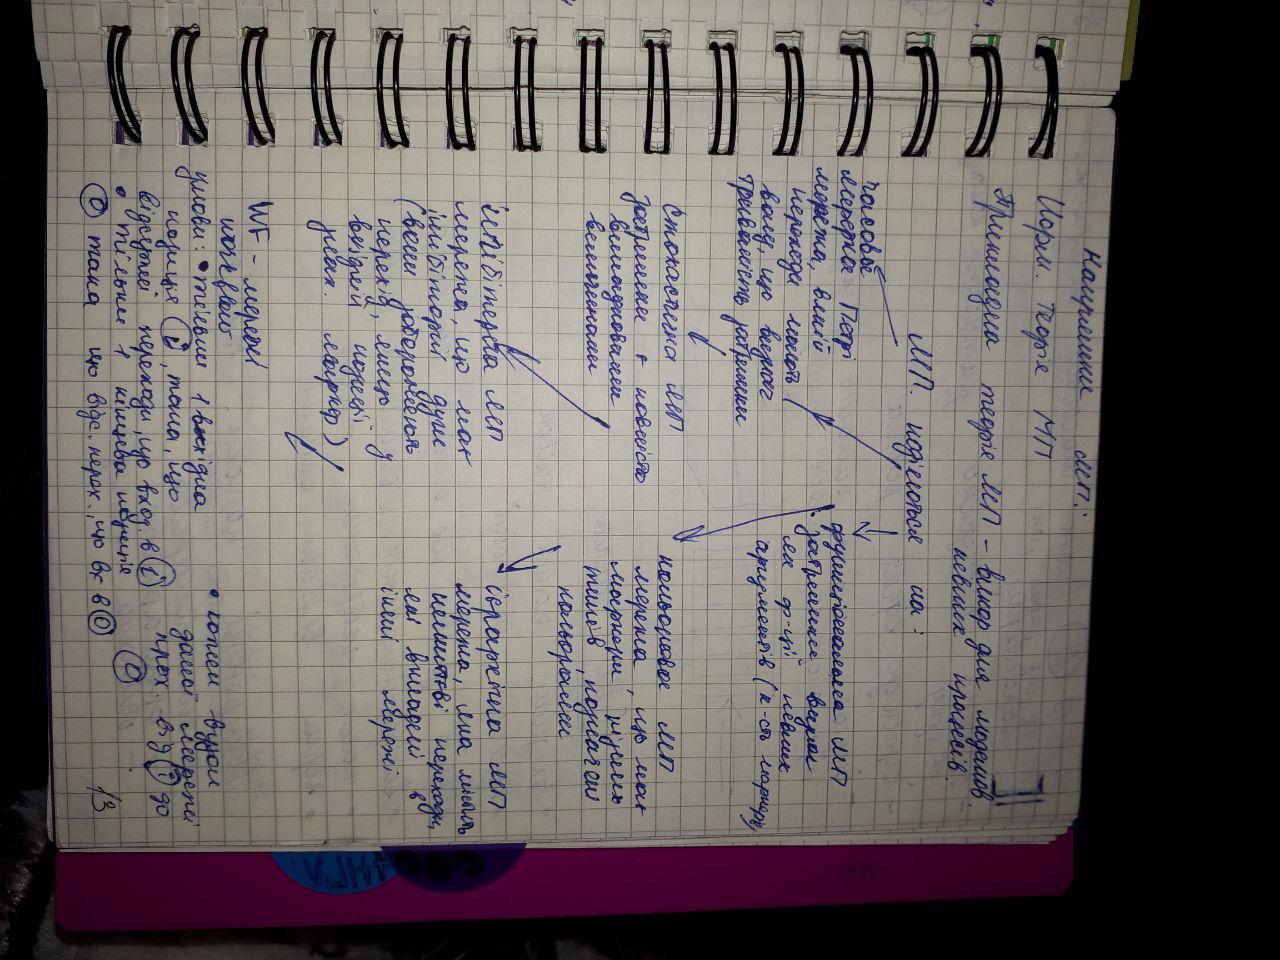 Напрямки МП:
Норм. теорія МП
Прикладна теорія МП – викор для моделюв.
певних процесів.
МП. поділяються на:
часова
мережа Петрі
мережа, в якій
переходи мають
вагу, що визнач
тривалість затримки
функціональна МП
затримки визнач
як ф-ції певних
аргументів (к-сть маркерів)
Стохастична МП
затримки + повністю
випадковими
величинами
кольорова МП
мережа, що має
маркери різних
типів, позначені
кольорами
інгібіторна МП
мережа, що має
інгібіторні дуги
(вони забороняють
перехід, якщо у
вхідній позиції
знах. маркер)
ієрархічна МП
мережа, яка містить
переходи,
які вкладені в
інші мережі
WF – мережі
workflow
умови: • тільки 1 вхідна
позиція i, така, що
відсутні переходи, що вход. в i
• тільки 1 кінцева позиція
O така що відс. перех., що вх в O
• кожен вузол
даної мережі
прох. від i до
O
13
СОО